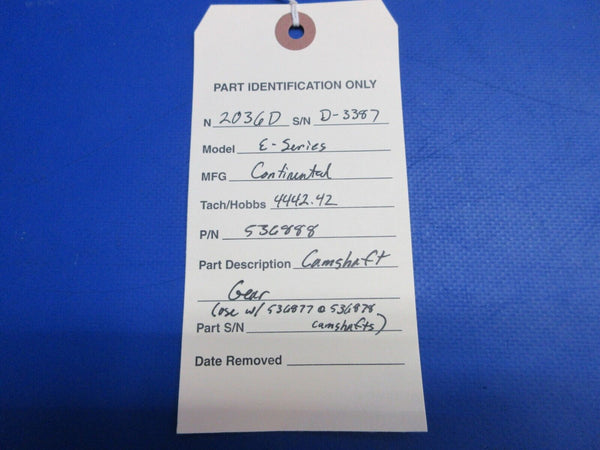 PART IDENTIFICATION ONLY
N 2036D S/N D-3387
Model E-Series
MFG Continental
Tach/Hobbs 4442.42
P/N 536888
Part Description Camshaft
Gear
(use w/ 536877 @ 536878
Part S/N camshafts)
Date Removed